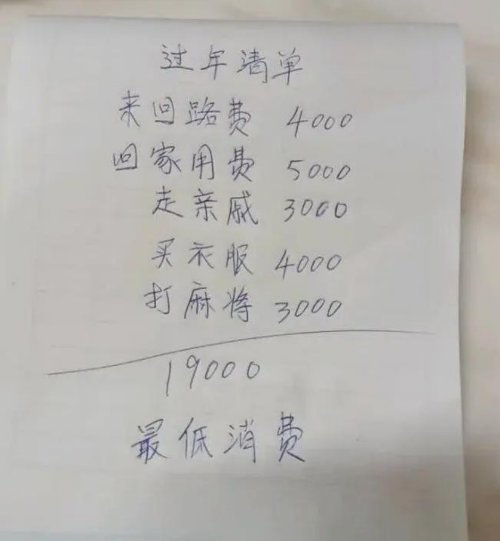 过年清单
来回路费 4000
回家用费 5000
走亲戚 3000
买衣服 4000
打麻将 3000
19000
最低消费